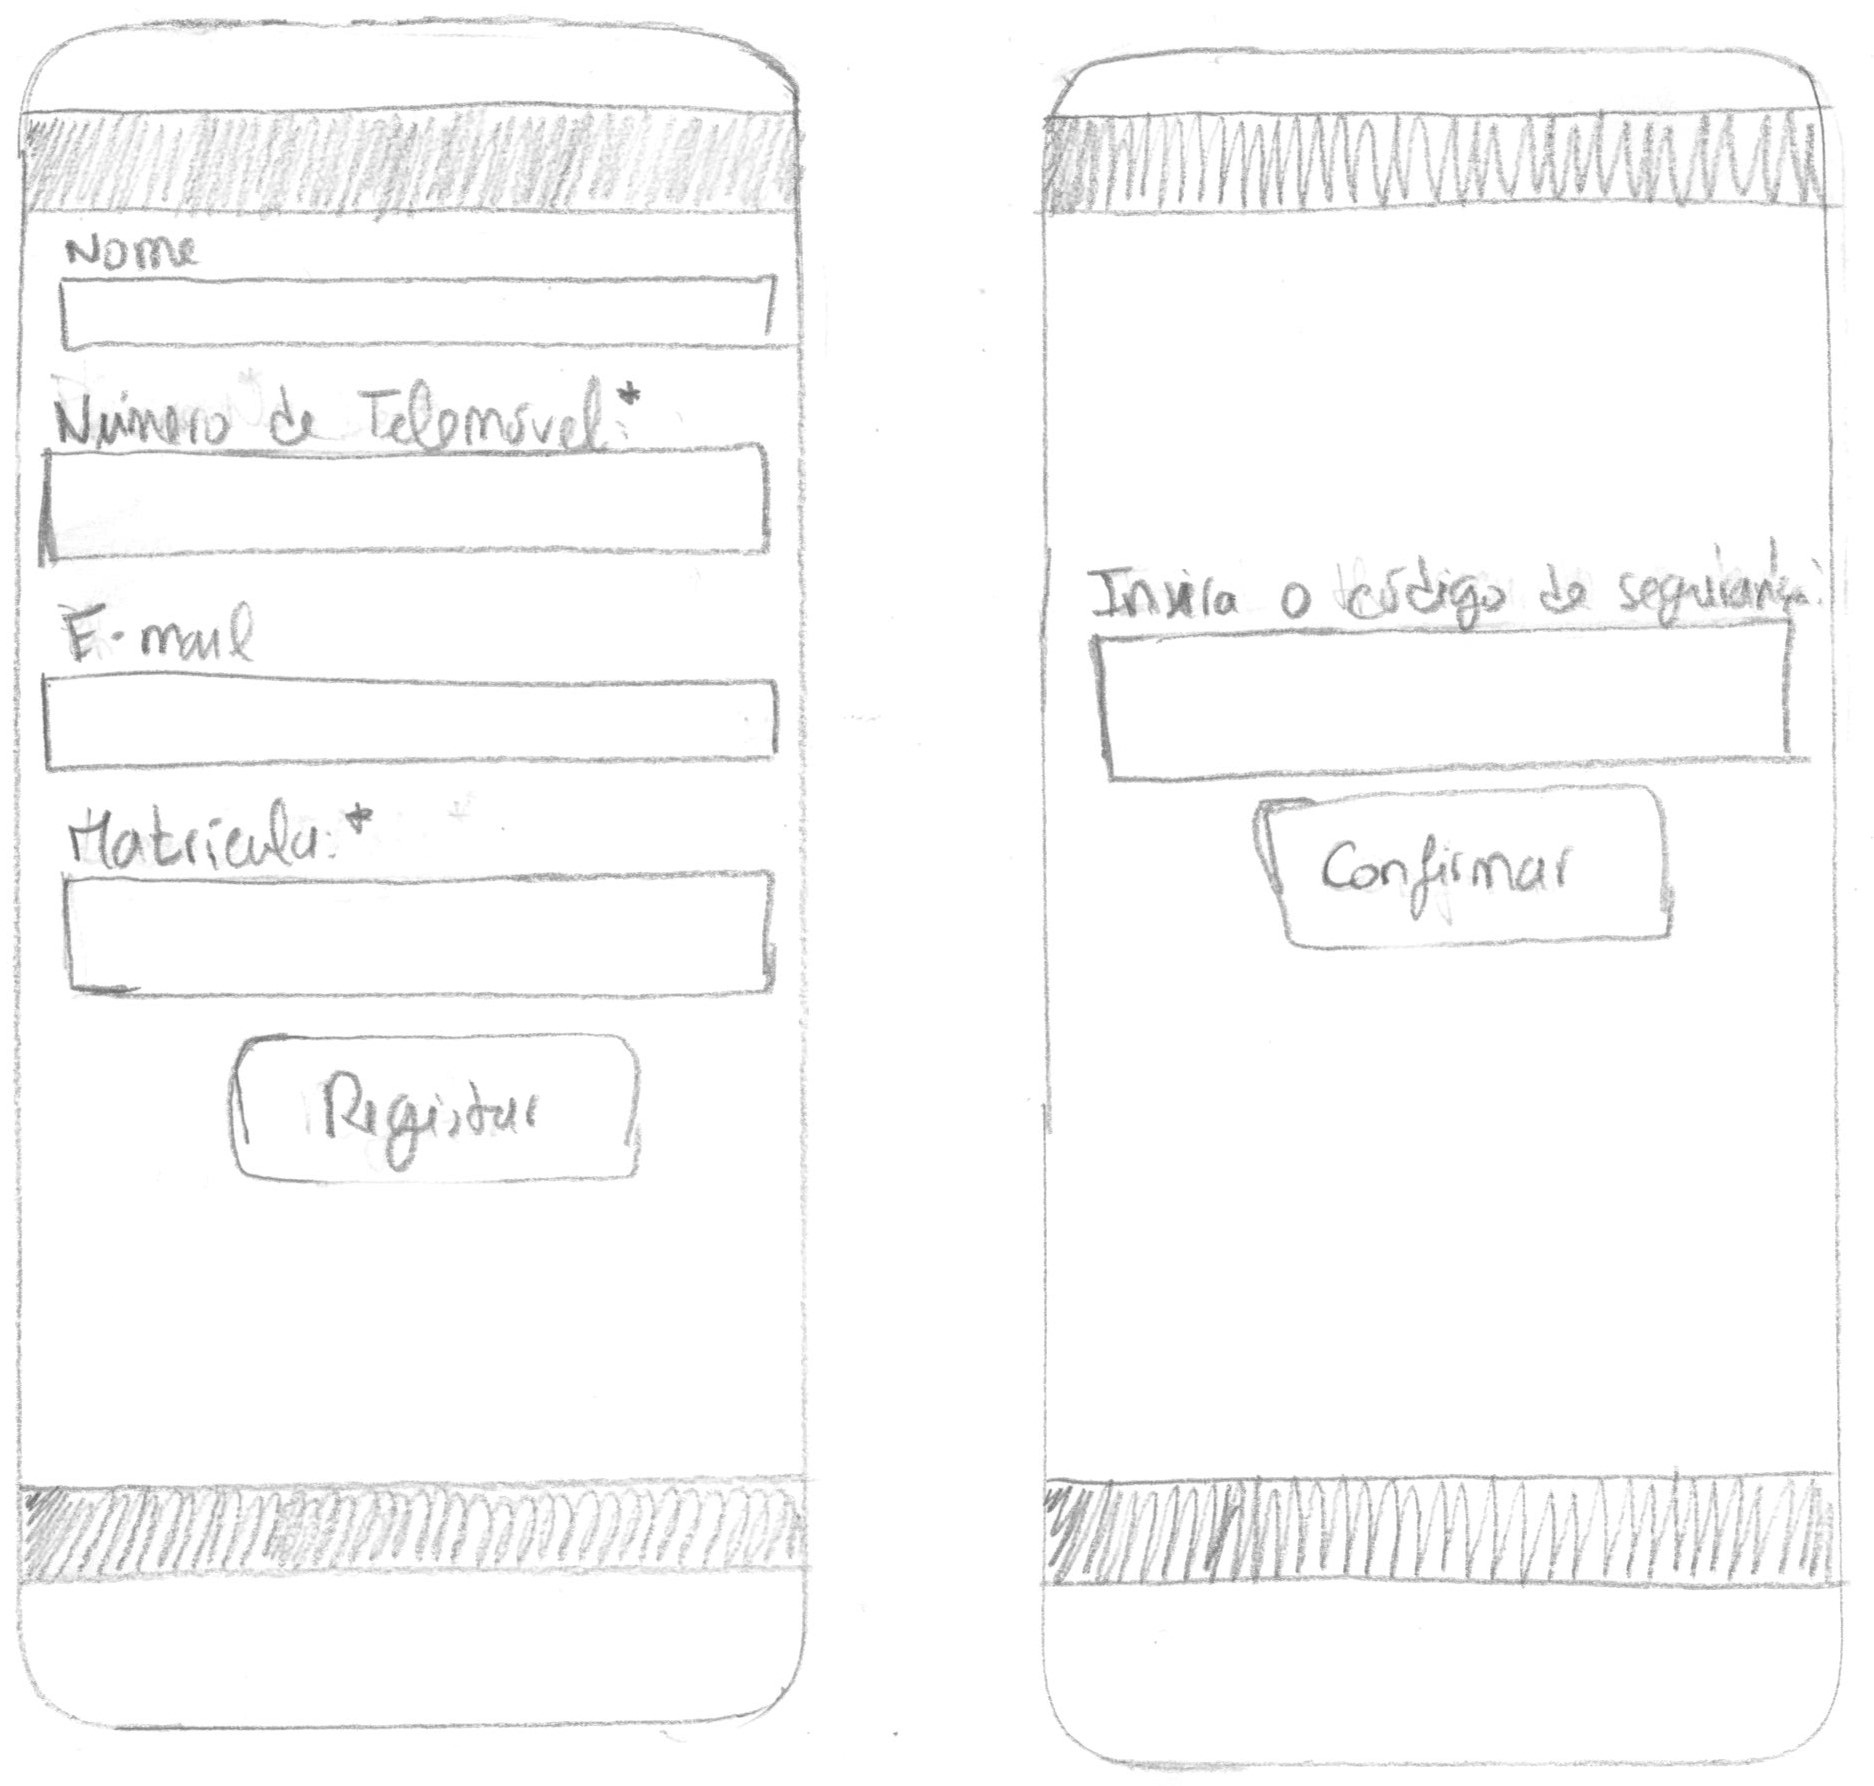 Nome
Número de Telemóvel:*
E-mail
Matrícula:*
Registar
Insira o código de segurança:
Confirmar